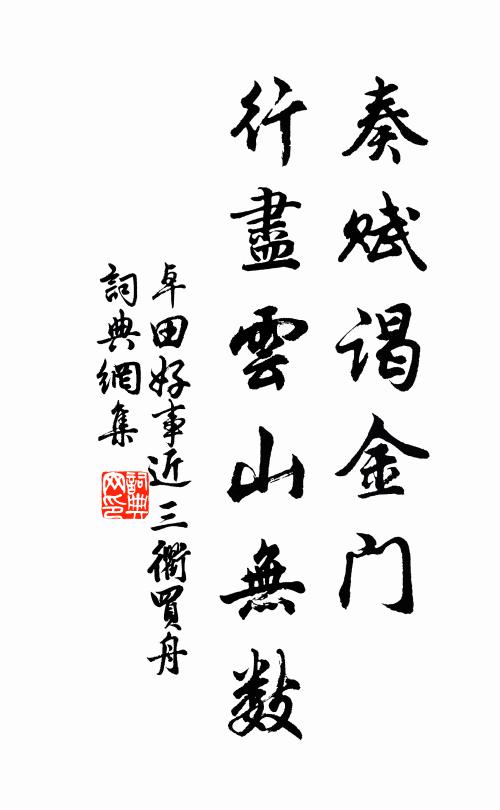 奏賦謁金门
行盡雲山無数
卓田好事近三衢買舟
詞典網集
詞典网印